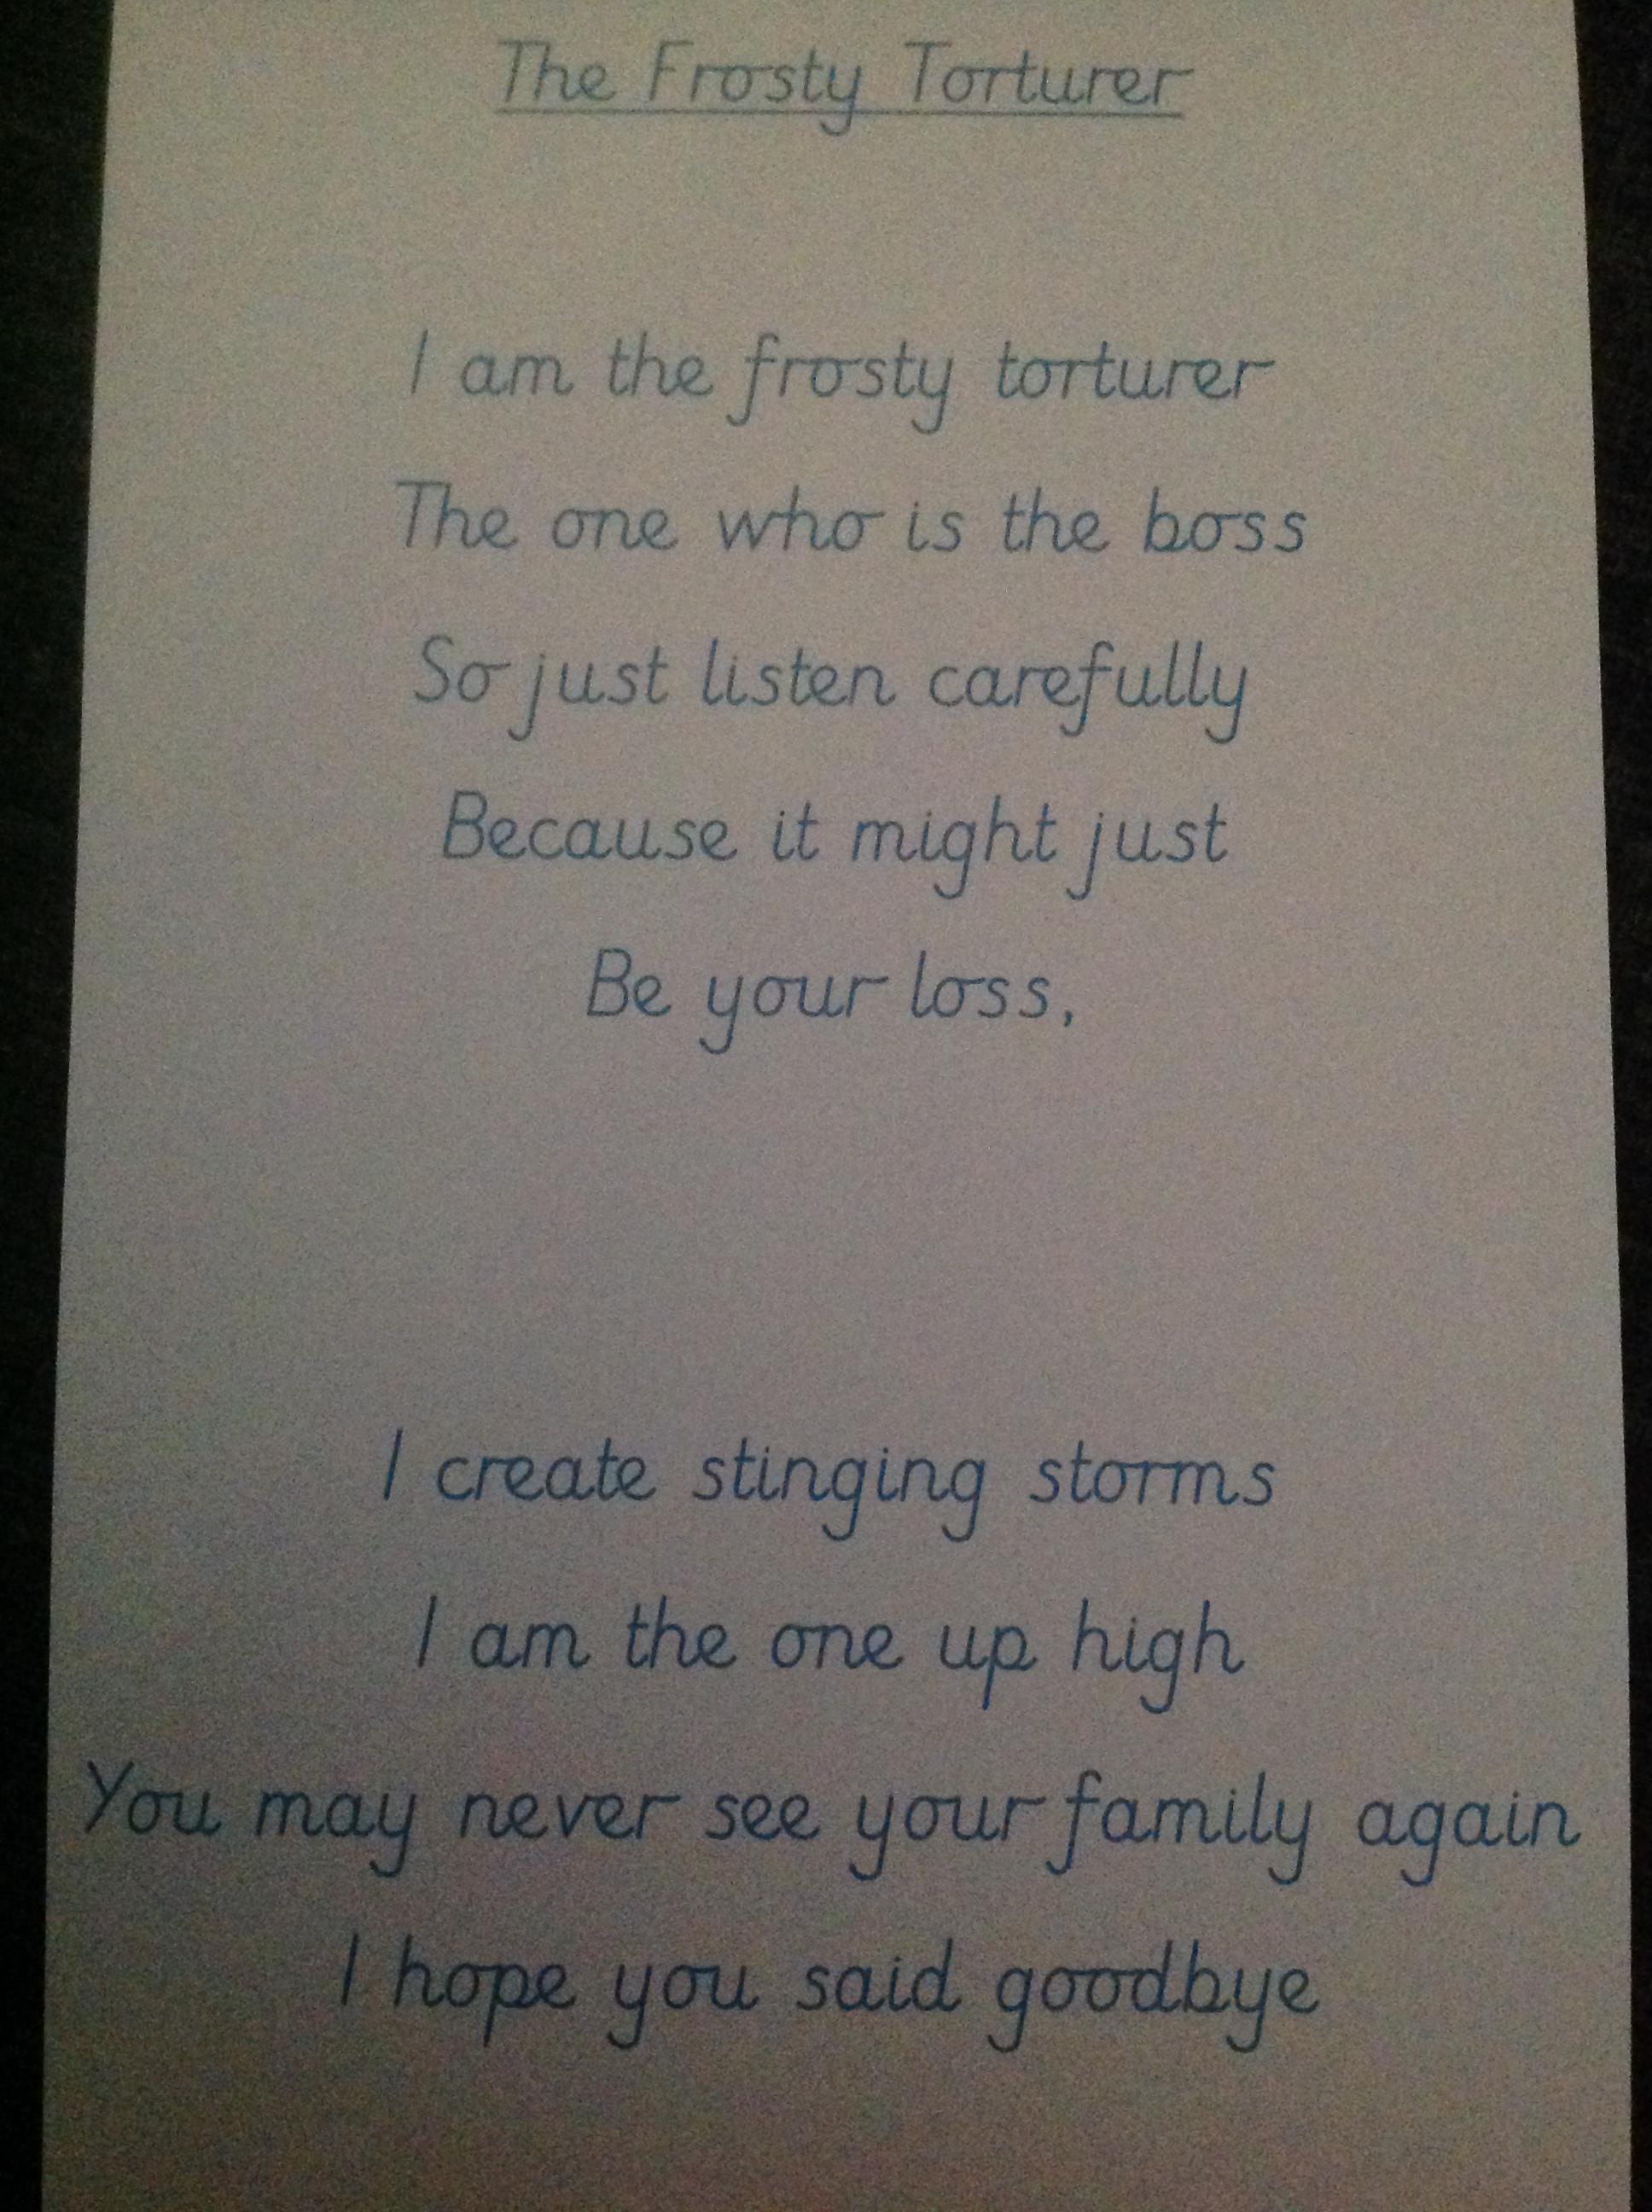 The Frosty Torturer
I am the frosty torturer
The one who is the boss
So just listen carefully
Because it might just
Be your loss,
I create stinging storms
I am the one up high
You may never see your family again
I hope you said goodbye